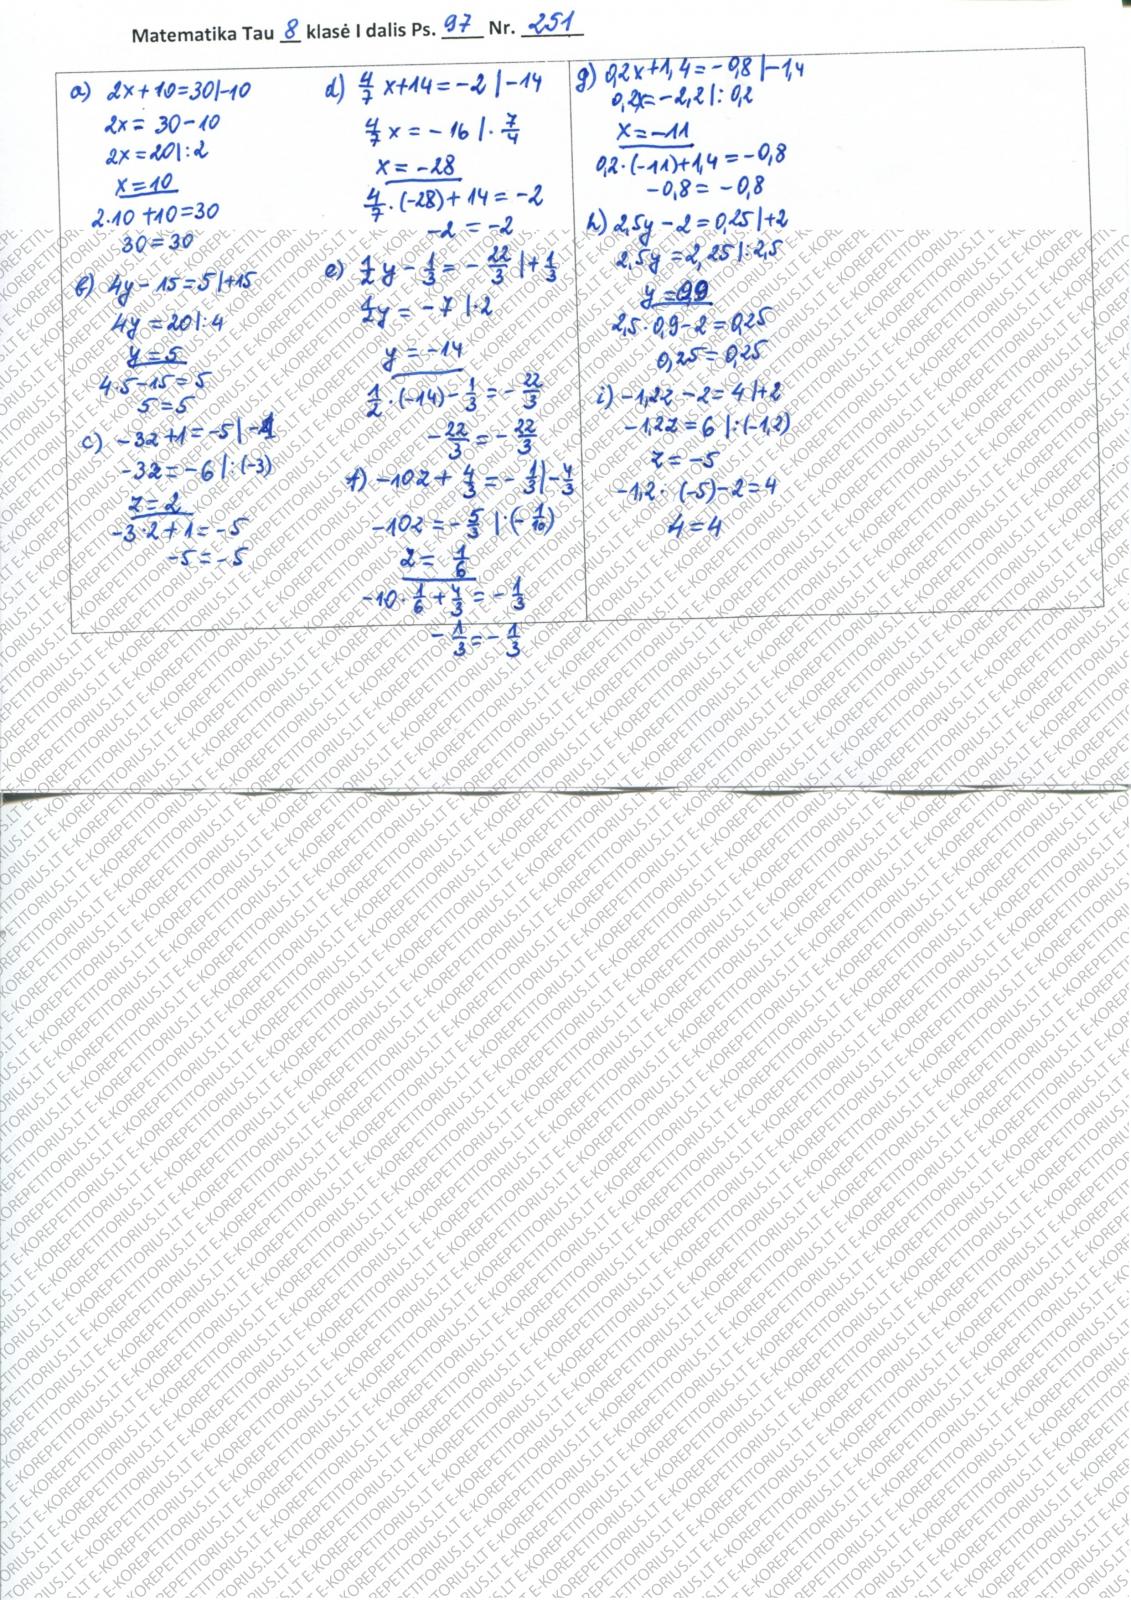 Matematika Tau 8 klasė I dalis Ps. 97 Nr. 251
a) 2x+10=30|-10
2x= 30-10
2x=20|:2
x=10
2·10+10=30
30=30
b) 4y-15=5|+15
4y=20|:4
y=5
4·5-15=5
5=5
c) -3z+1=-5|-1
-3z=-6|:(-3)
z=2
-3·2+1=-5
-5=-5
d) 4/7 x+14=-2|-14
4/7 x=-16|·7/4
x=-28
4/7·(-28)+14=-2
-2=-2
e) 1/2 y-1/3=-22/3|+1/3
1/2 y=-7|·2
y=-14
1/2·(-14)-1/3=-22/3
-22/3=-22/3
f) -10z+4/3=-1/3|-4/3
-10z=-5/3|·(-1/10)
z=1/6
-10·1/6+4/3=-1/3
-1/3=-1/3
g) 0,2x+1,4=-0,8|-1,4
0,2x=-2,2|:0,2
x=-11
0,2·(-11)+1,4=-0,8
-0,8=-0,8
h) 2,5y-2=0,25|+2
2,5y=2,25|:2,5
y=0,9
2,5·0,9-2=0,25
0,25=0,25
i) -1,2z-2=4|+2
-1,2z=6|:(-1,2)
z=-5
-1,2·(-5)-2=4
4=4
E-KOREPETITORIUS.LT